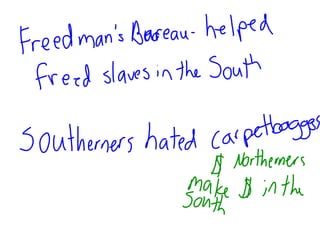 Freedman's Bureau - helped
freed slaves in the South
Southerners hated carpetbaggers
Northerners
make $ in the
South